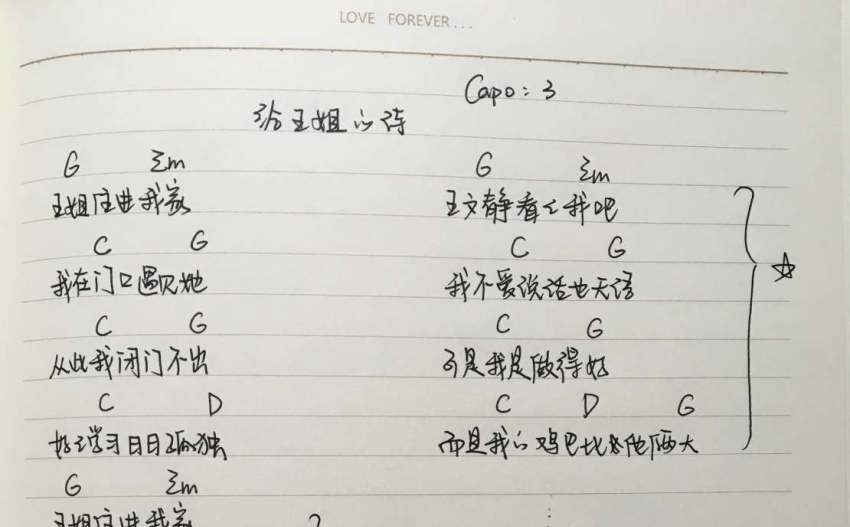 LOVE FOREVER...
Capo: 3
给王姐的诗
G Em
王姐住进我家
C G
我在门口遇见她
C G
从此我闭门不出
C D
好好学习日日孤独
G Em
王姐住进我家
G Em
王文静看看我吧
C G
我不爱说话也无语
C G
可是我是做得好
C D G
而且我的鸡巴比他俩大